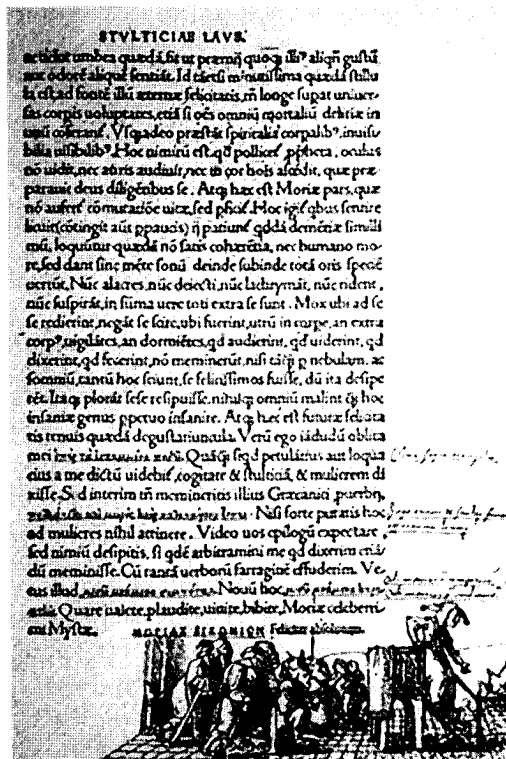 STVLTICIAE LAVS.
umbra quædã, fit ut præmij quoqꝫ illiꝰ aliqñ gustũ
aut odorẽ aliquẽ sentiãt. Id tãetsi minutissima quædã stillu
la est, ad fontẽ illũ æternæ felicitatis, tñ longe supat uniuer
sas corpis uoluptates, etiã si oẽs omniũ mortaliũ delitiæ in
unũ . Vsqꝫadeo præstãt spiritalia corpalibꝰ, inuisi
bilia uisibilibꝰ. Hoc nimirũ est, qđ pollicet ꝓpheta, oculus
nõ uidit, nec auris audiuit, nec in cor hoĩs ascẽdit, quæ præ
parauit deus diligẽtibus se. Atqꝫ hæc est Moriæ pars, quæ
nõ aufert cõmutatiõe uitæ, sed . Hoc igit qbus sentire
licuit (cõtingit aũt ꝑpaucis) hi patiunt qđdã demẽtiæ simili
mũ, loquũtur quædã nõ satis cohærẽtia, nec humano mo
re, sed dant sine mẽte sonũ deinde subinde totã oris speciẽ
uertũt. Nũc alacres, nũc deiecti, nũc lachrymãt, nũc rident,
nũc suspirãt, in sũma uere toti extra se sunt. Mox ubi ad se
se redierint, negãt se scire, ubi fuerint, utrũ in corpe, an extra
corpꝰ, uigilãtes, an dormiẽtes, qd audierint, qd uiderint, qd
dixerint, qd fecerint, nõ meminerũt, nisi tãqꝫ ꝑ nebulam, ac
somniũ, tantũ hoc sciunt, se felicissimos fuisse, dũ ita desipe
rẽt. Itaqꝫ plorãt sese resipuisse, nihilqꝫ omniũ malint qꝫ hoc
insaniæ genus ꝑpetuo insanire. Atqꝫ hæc est futuræ felicita
tis tenuis quædã degustatiuncula. Verũ ego iãdudũ oblita
mei . Quãqꝫ siqd petulãtius aut loqua
cius a me dictũ uidebit, cogitate & stulticiã, & mulierem di
xisse. Sed interim tñ memineritis illius Græcanici ꝓuerbij,
Nisi forte putatis hoc
ad mulieres nihil attinere. Video uos epilogũ expectare,
sed nimiũ desipitis, si qdẽ arbitramini me qd dixerim etiã
dũ meminisse. Cũ tantã uerborũ farraginẽ effuderim. Ve
tus illud, . Nouũ hoc,
. Quare ualete, plaudite, uiuite, bibite, Moriæ celeberri
mi Mystæ. Feliciter absolutum.